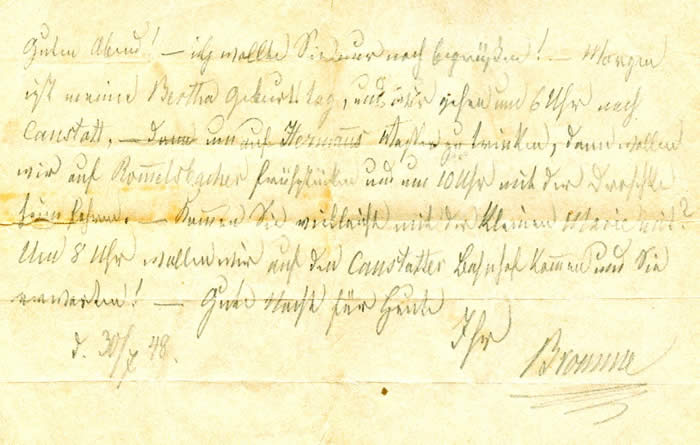 Guten Abend! – ich wollte Sie nur noch begrüßen! – Morgen
ist meine Bertha Geburtstag, und wir gehen um 6 Uhr nach
Canstatt, – dann um auf Hermanns Wasser zu trinken, dann wollen
wir auf Rommelsbacher frühstücken und um 10 Uhr mit der Droschke
heim fahren. – Kommen Sie vielleicht mit der kleinen Marie mit?
Um 8 Uhr wollen wir auf den Canstatter Bahnhof kommen und Sie
erwarten! – Gute Nacht für heute
Ihr
d. 30/ 48. Bromme